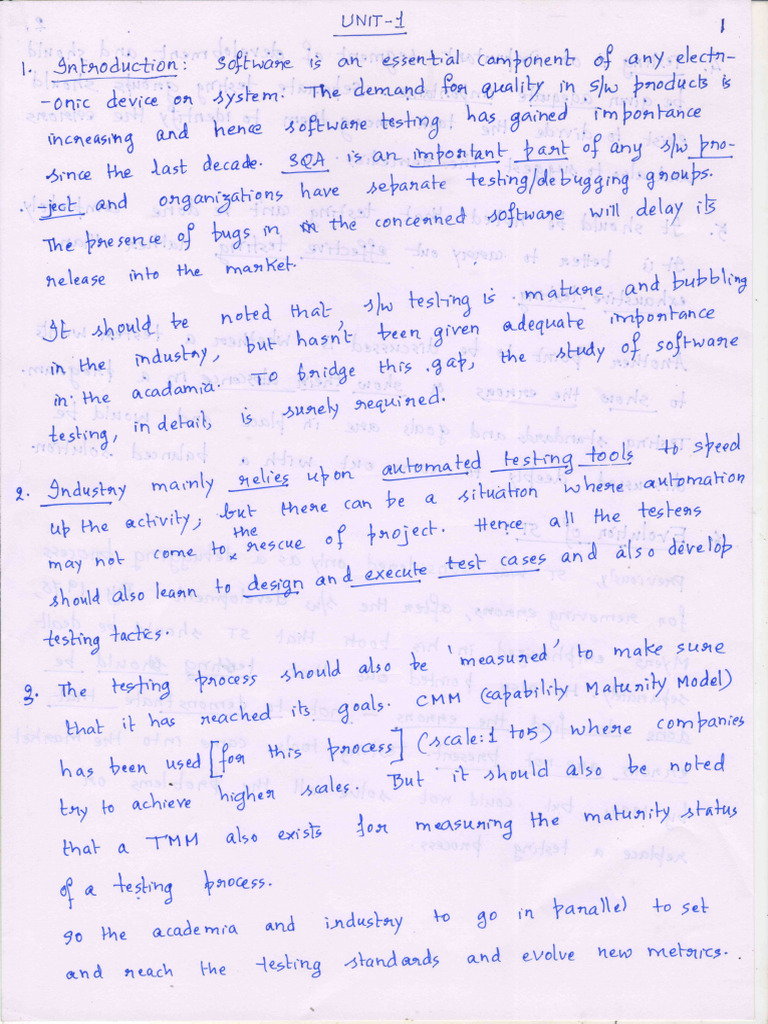 UNIT-1
1
1. Introduction: Software is an essential component of any electr-
-onic device or system. The demand for quality in s/w products is
increasing and hence software testing has gained importance
since the last decade. SQA is an important part of any s/w pro-
-ject and organizations have separate testing/debugging groups.
The presence of bugs in the concerned software will delay its
release into the market.
It should be noted that, s/w testing is mature and bubbling
in the industry, but hasn't been given adequate importance
in the acadamia. To bridge this gap, the study of software
testing, in detail, is surely required.
2. Industry mainly relies upon automated testing tools to speed
up the activity, but there can be a situation where automation
may not come to the rescue of project. Hence all the testers
should also learn to design and execute test cases and also develop
testing tactics.
3. The testing process should also be 'measured' to make sure
that it has reached its goals. CMM (capability Maturity Model)
has been used [for this process] (scale:1 to5) where companies
try to achieve higher scales. But it should also be noted
that a TMM also exists for measuring the maturity status
of a testing process.
so the academia and industry to go in parallel to set
and reach the testing standards and evolve new metrics.